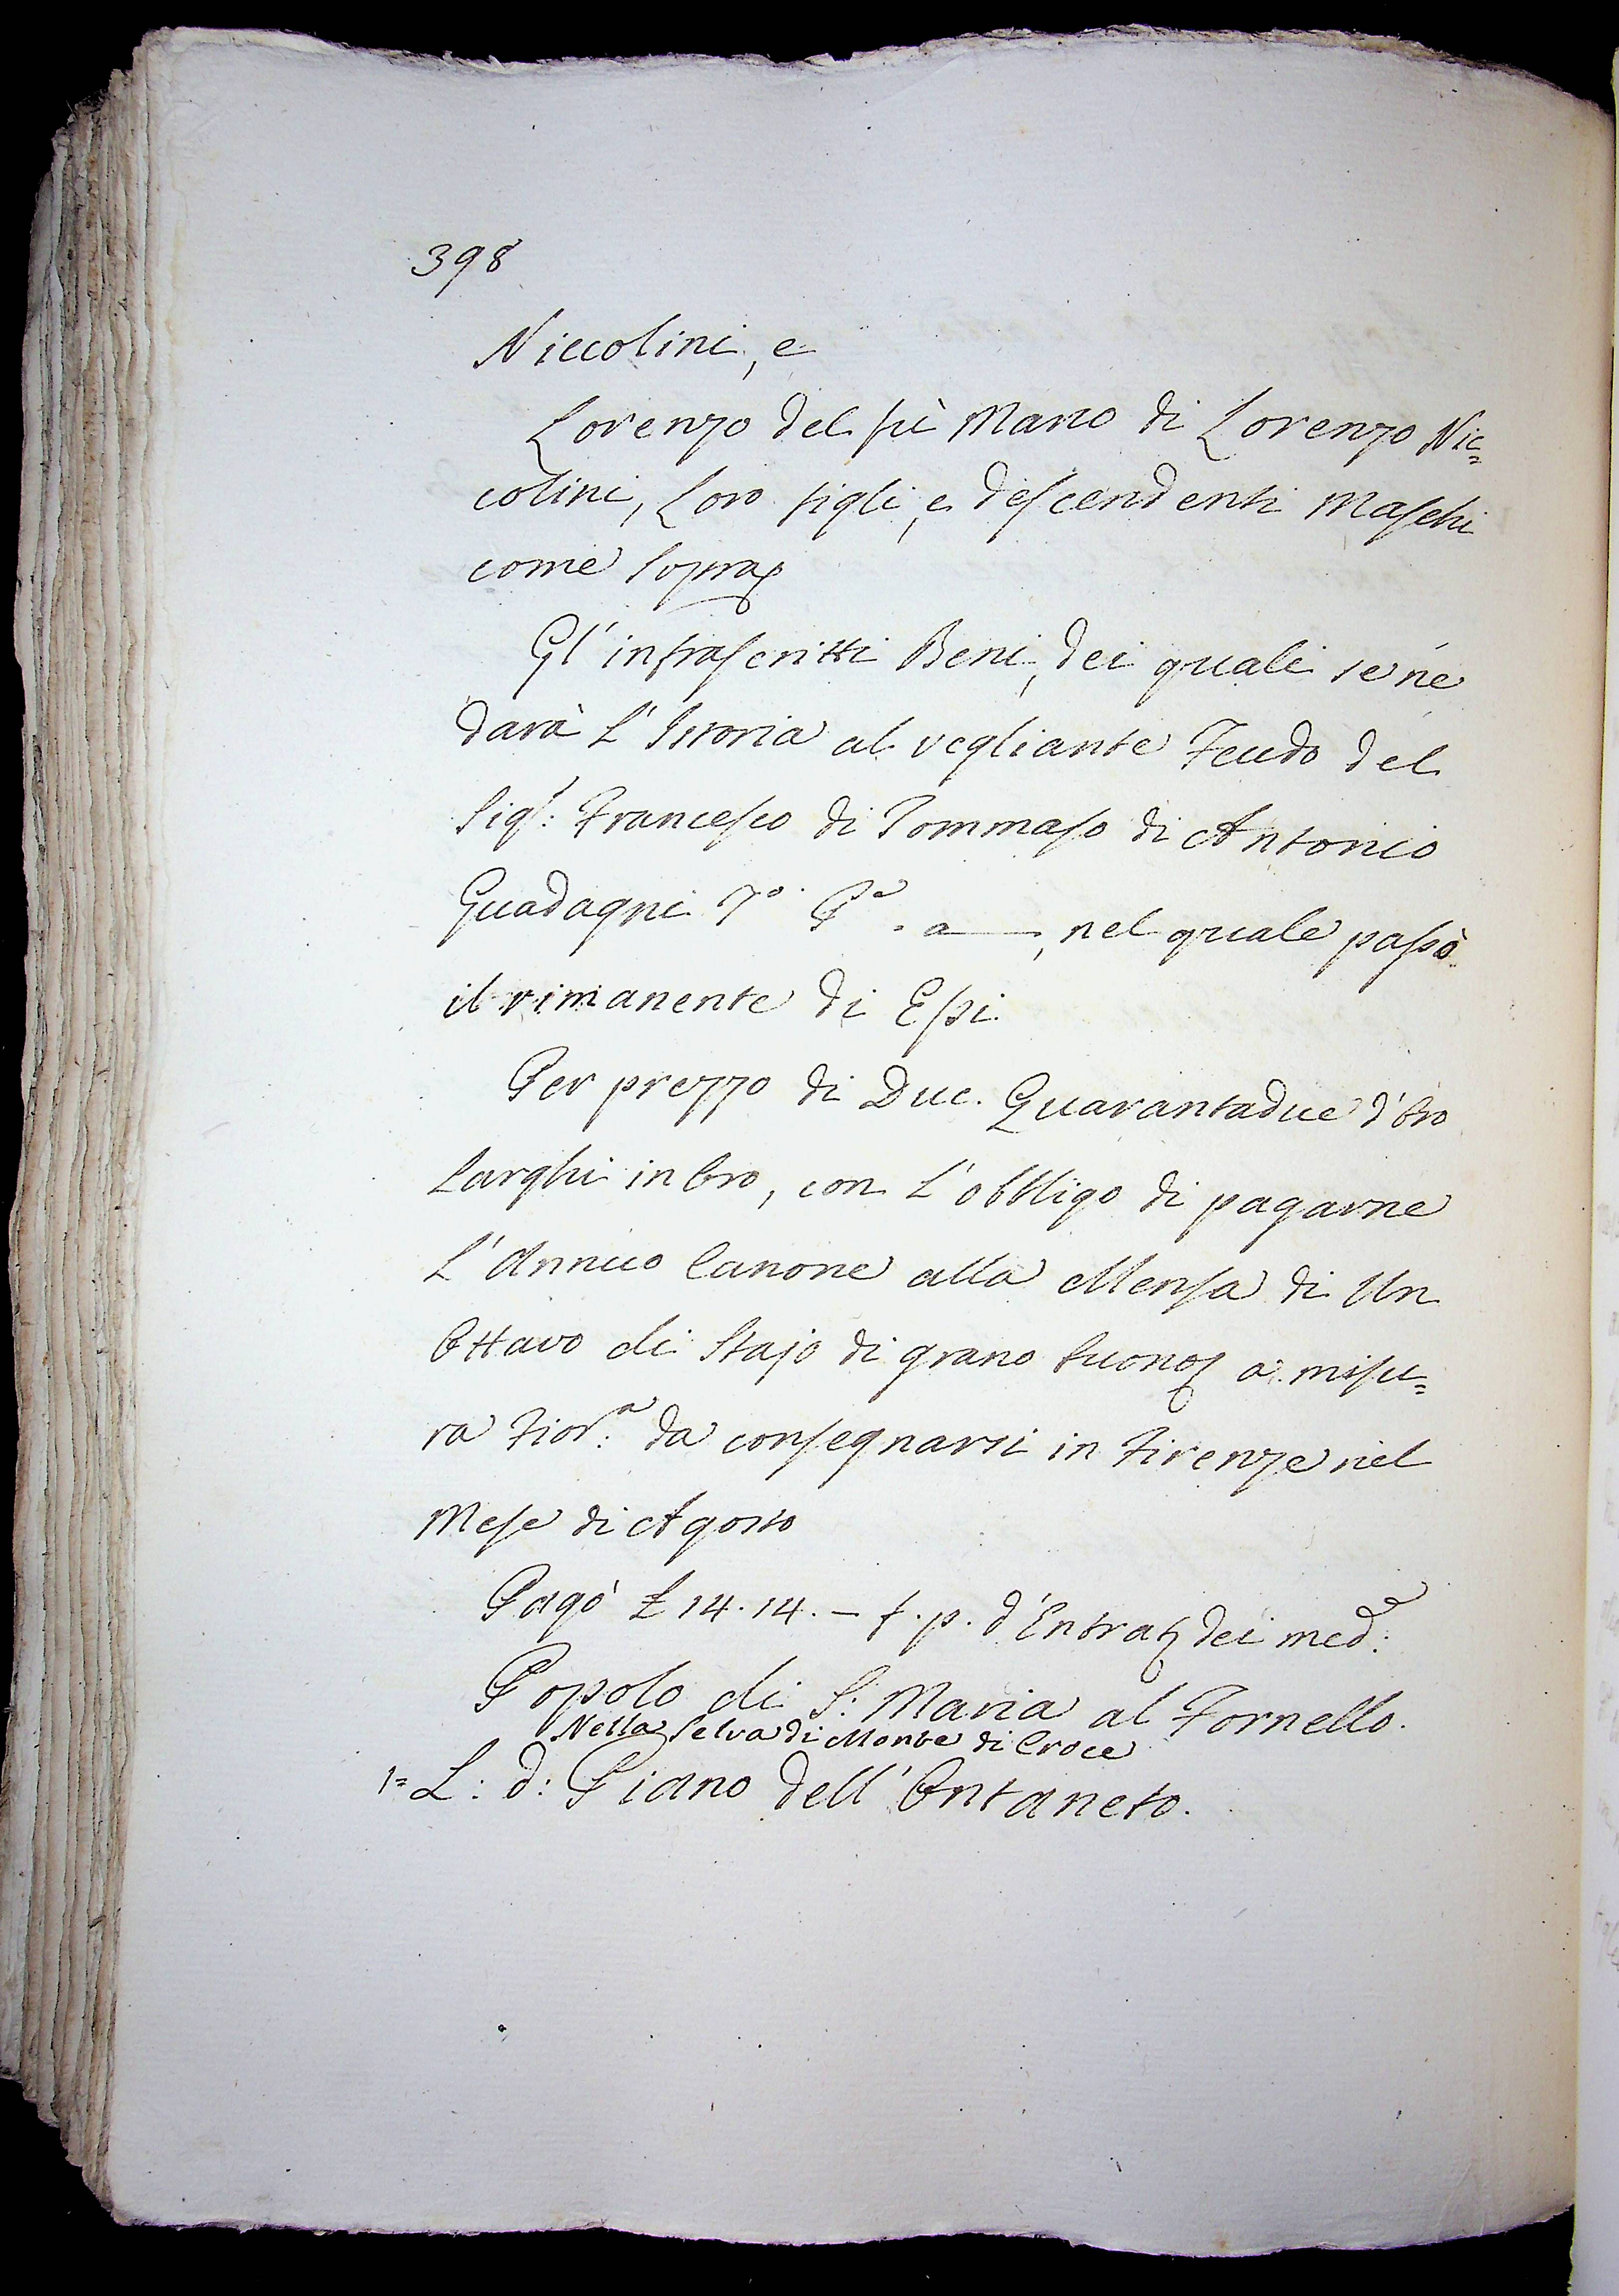 398
Niccolini, e
Lorenzo del fù Marco di Lorenzo Nic=
colini, Loro figli, e descendenti Maschi
come sopra
Gl'infrascritti Beni, dei quali se ne
darà L'Istoria al vegliante Feudo del
Sigr: Francesco di Tommaso di Antonio
Guadagni To. Pa. a—, nel quale passò
il rimanente di Essi
Per prezzo di Duc. Quarantadue d'Oro
Larghi in Oro, con L'obbligo di pagarne
L'Annuo Canone alla Mensa di Un
Ottavo di Stajo di grano buono a misu=
ra Fiorna: da consegnarsi in Firenze nel
Mese di Agosto
Pagò £ 14.14.— f. p. d'Entrata dei mede:
Popolo di S: Maria al Fornello.
Nella Selva di Monte di Croce
1= L: d: Piano dell'Ontaneto.